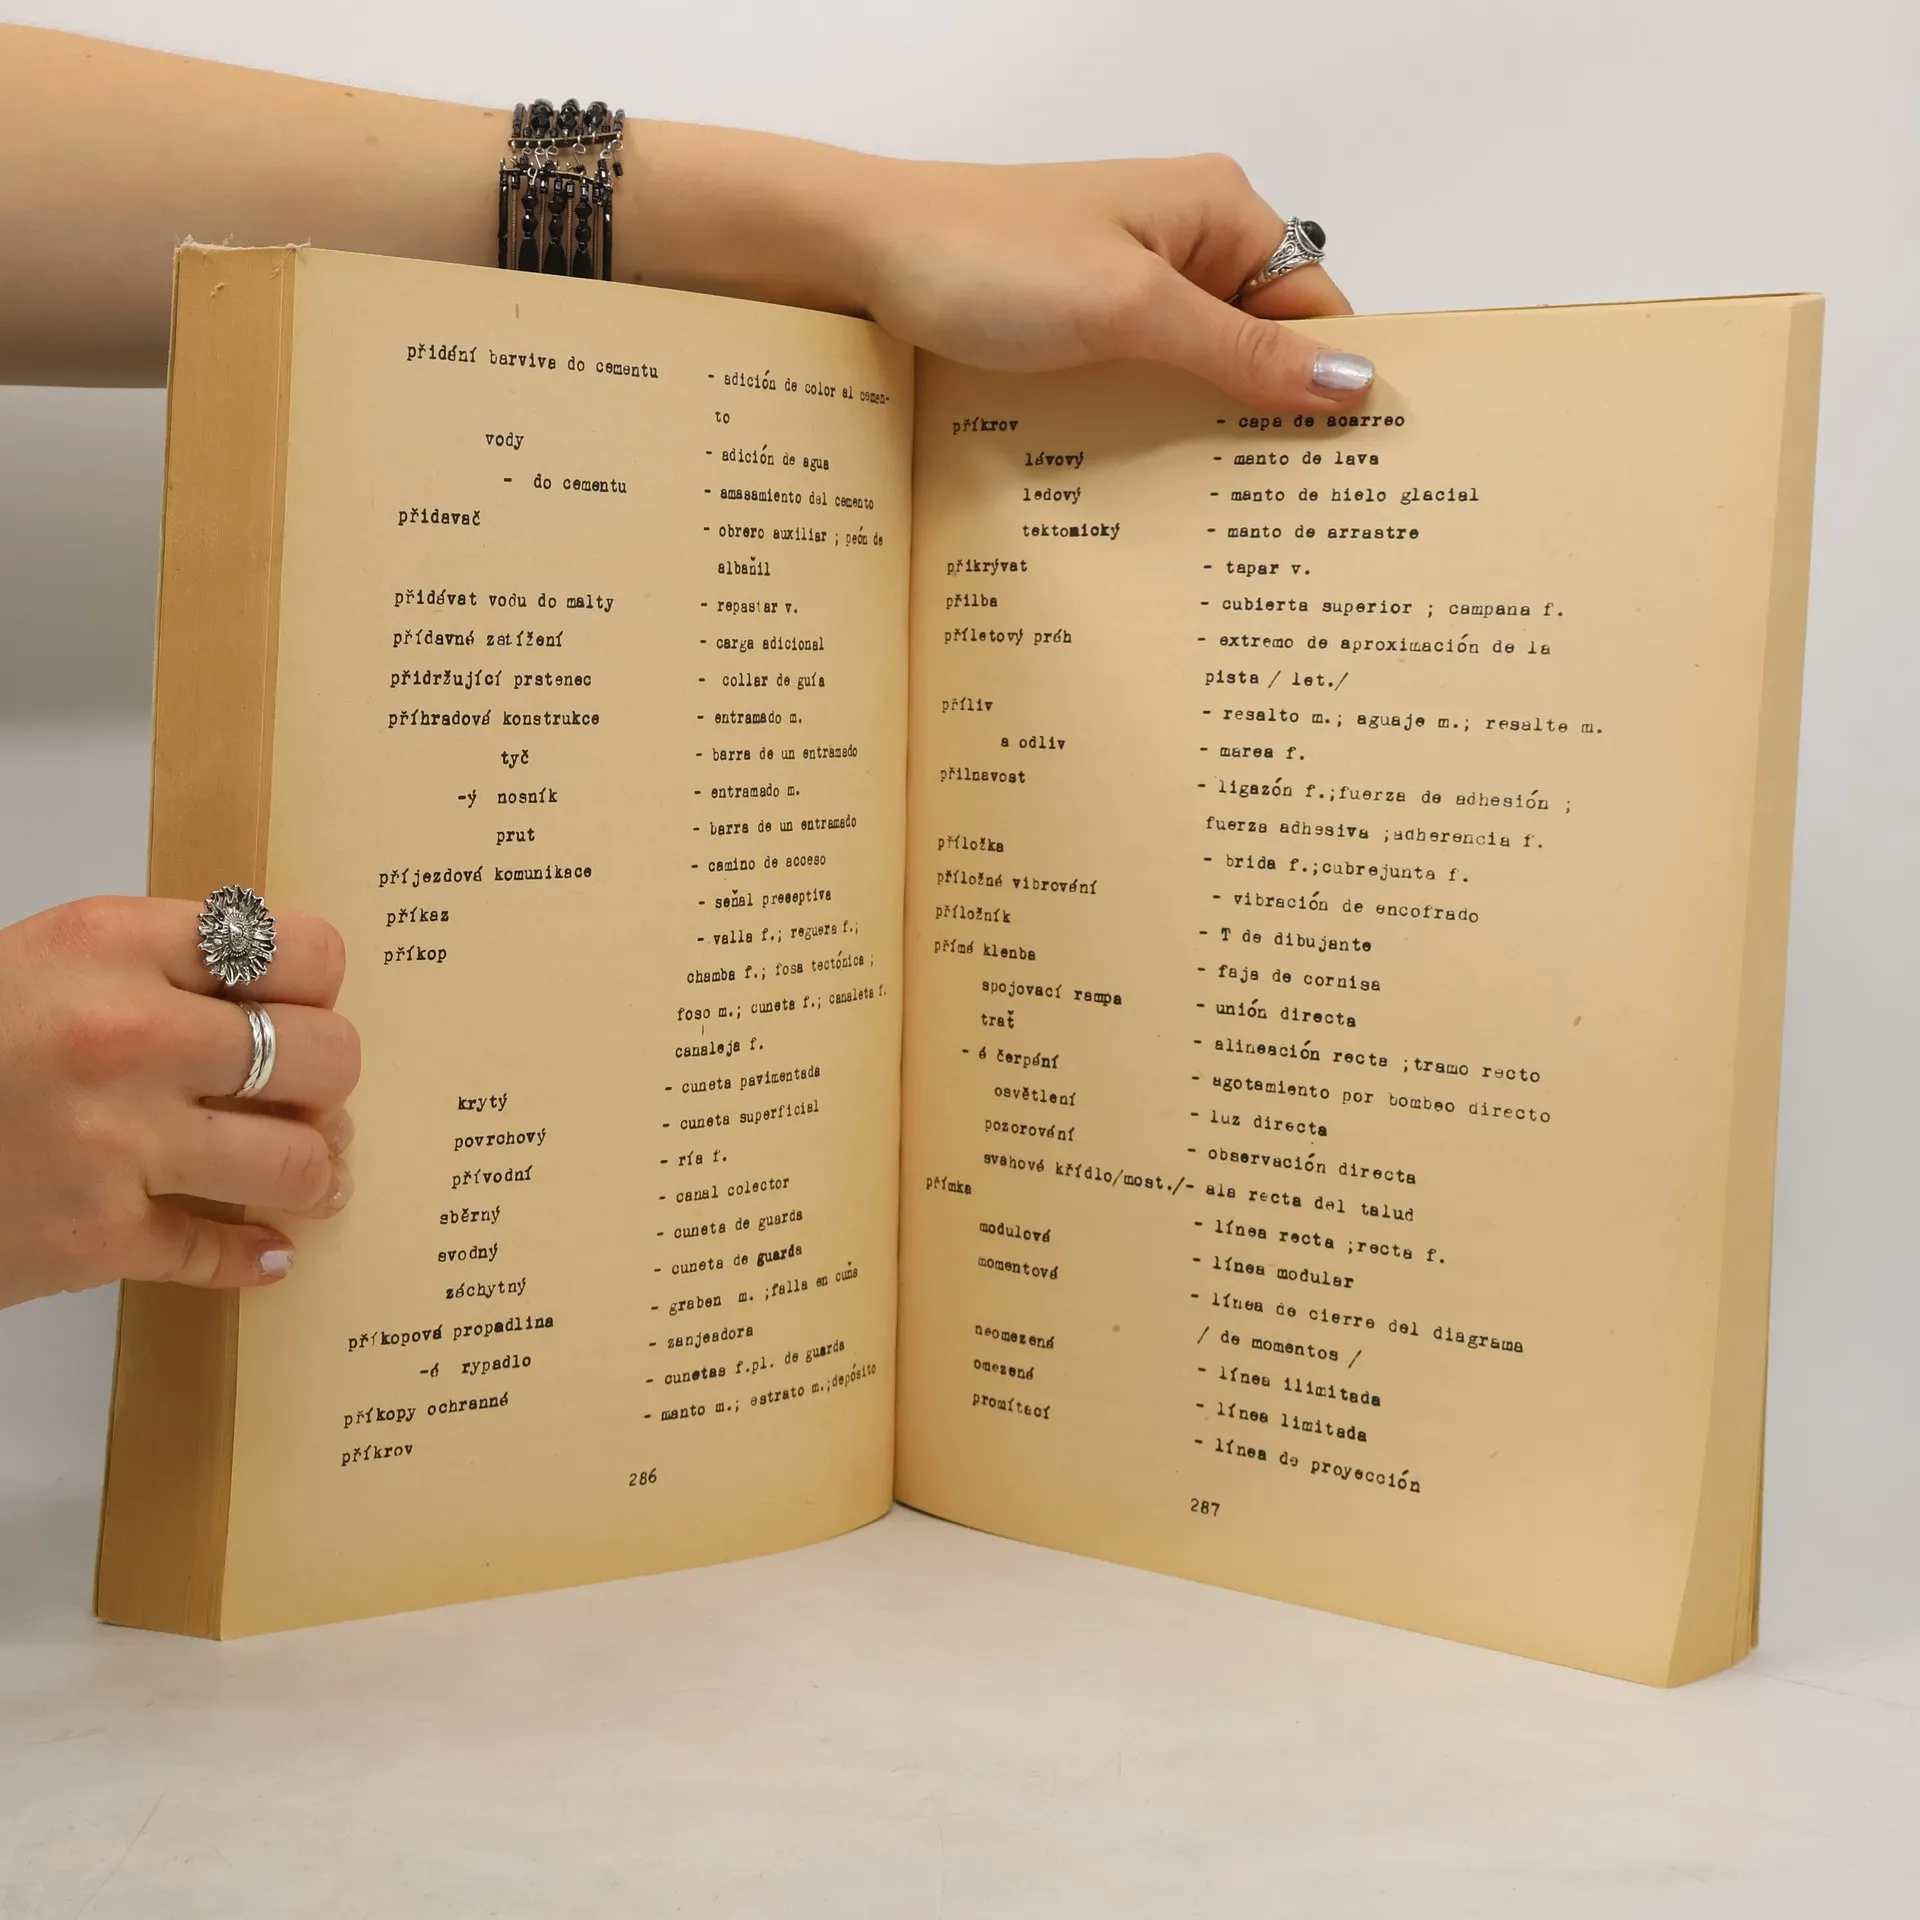 přidání barviva do cementu - adición de color al cemen-
to
vody - adición de agua
- do cementu - amasamiento del cemento
přidavač - obrero auxiliar ; peón de
albañil
přidávat vodu do malty - repastar v.
přídavné zatížení - carga adicional
přidržující prstenec - collar de guía
příhradová konstrukce - entramado m.
tyč - barra de un entramado
-ý nosník - entramado m.
prut - barra de un entramado
příjezdová komunikace - camino de acceso
příkaz - señal preceptiva
příkop - valla f.; reguera f.;
chamba f.; fosa tectónica ;
foso m.; cuneta f.; canaleta f.
canaleja f.
krytý - cuneta pavimentada
povrchový - cuneta superficial
přívodní - ría f.
sběrný - canal colector
svodný - cuneta de guarda
záchytný - cuneta de guarda
příkopová propadlina - graben m. ;falla en cuña
-é rypadlo - zanjeadora
příkopy ochranné - cunetas f.pl. de guarda
příkrov - manto m.; estrato m.;depósito
286
příkrov - capa de acarreo
lávový - manto de lava
ledový - manto de hielo glacial
tektomický - manto de arrastre
přikrývat - tapar v.
přilba - cubierta superior ; campana f.
příletový práh - extremo de aproximación de la
pista / let./
příliv - resalto m.; aguaje m.; resalte m.
a odliv - marea f.
přilnavost - ligazón f.;fuerza de adhesión ;
fuerza adhesiva ;adherencia f.
příložka - brida f.;cubrejunta f.
příložné vibrování - vibración de encofrado
příložník - T de dibujante
přímá klenba - faja de cornisa
spojovací rampa - unión directa
trať - alineación recta ;tramo recto
- é čerpání - agotamiento por bombeo directo
osvětlení - luz directa
pozorování - observación directa
svahové křídlo/most./- ala recta del talud
přímka - línea recta ;recta f.
modulová - línea modular
momentová - línea de cierre del diagrama
/ de momentos /
neomezená - línea ilimitada
omezená - línea limitada
promítací - línea de proyección
287